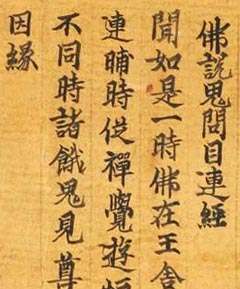 佛說鬼問目連經
聞如是一時佛在王舍
連晡時從禪覺遊恒
不同時諸餓鬼見尊
因緣